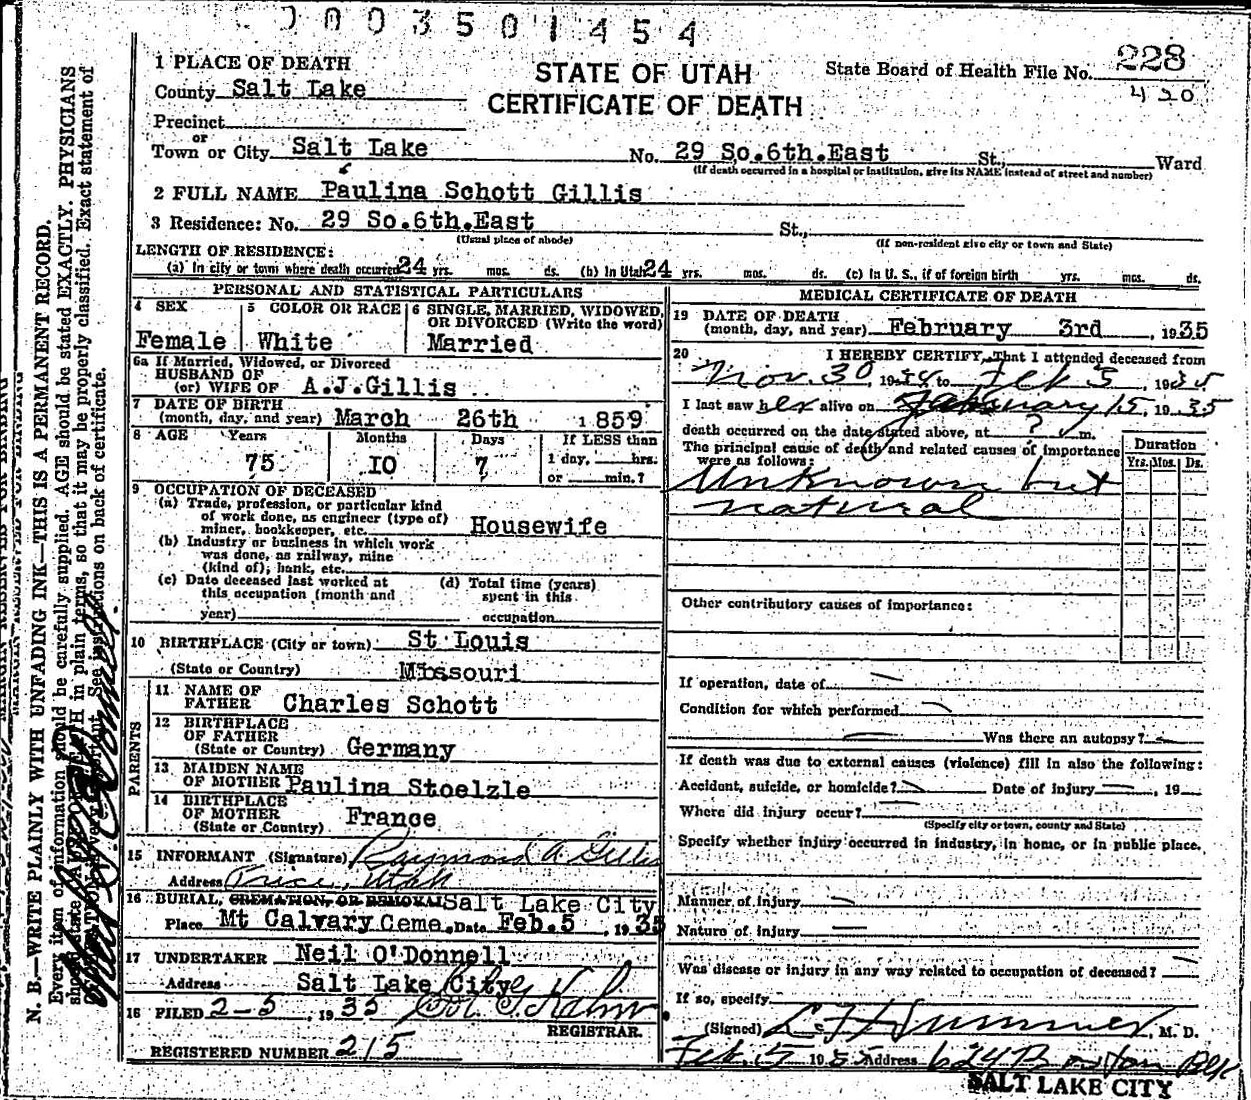 0003501454
1 PLACE OF DEATH
County Salt Lake
STATE OF UTAH
CERTIFICATE OF DEATH
State Board of Health File No. 228
420
Precinct
or
Town or City Salt Lake No. 29 So.6th.East St., Ward
(If death occurred in a hospital or institution, give its NAME instead of street and number)
2 FULL NAME Paulina Schott Gillis
3 Residence: No. 29 So.6th.East St.,
(Usual place of abode) (If non-resident give city or town and State)
LENGTH OF RESIDENCE:
(a) In city or town where death occurred 24 yrs. mos. ds. (b) In Utah 24 yrs. mos. ds. (c) In U. S., if of foreign birth yrs. mos. ds.
PERSONAL AND STATISTICAL PARTICULARS
4 SEX
Female
5 COLOR OR RACE
White
6 SINGLE, MARRIED, WIDOWED,
OR DIVORCED (Write the word)
Married
6a If Married, Widowed, or Divorced
HUSBAND OF
(or) WIFE OF A.J.Gillis
7 DATE OF BIRTH
(month, day, and year) March 26th 1859
8 AGE Years Months Days If LESS than
75 10 7 1 day, hrs.
or min.?
9 OCCUPATION OF DECEASED
(a) Trade, profession, or particular kind
of work done, as engineer (type of)
miner, bookkeeper, etc. Housewife
(b) Industry or business in which work
was done, as railway, mine
(kind of); bank, etc.
(c) Date deceased last worked at
this occupation (month and
year)
(d) Total time (years)
spent in this
occupation
10 BIRTHPLACE (City or town) St Louis
(State or Country) Missouri
PARENTS
11 NAME OF
FATHER Charles Schott
12 BIRTHPLACE
OF FATHER
(State or Country) Germany
13 MAIDEN NAME
OF MOTHER Paulina Stoelzle
14 BIRTHPLACE
OF MOTHER
(State or Country) France
15 INFORMANT (Signature) Raymond A Gillis
Address Price, Utah
16 BURIAL, CREMATION, OR REMOVAL Salt Lake City
Place Mt Calvary Ceme. Date Feb.5, 1935
17 UNDERTAKER Neil O'Donnell
Address Salt Lake City
18 FILED 2-5, 1935
REGISTRAR.
REGISTERED NUMBER 215
MEDICAL CERTIFICATE OF DEATH
19 DATE OF DEATH
(month, day, and year) February 3rd, 1935
20 I HEREBY CERTIFY, That I attended deceased from
Nov. 30, 1934 to Feb 3, 1935
I last saw her alive on January 15, 1935
death occurred on the date stated above, at ? m.
The principal cause of death and related causes of importance
were as follows:
Duration
Yrs. Mos. Ds.
Unknown but
natural
Other contributory causes of importance:
If operation, date of
Condition for which performed
Was there an autopsy?
If death was due to external causes (violence) fill in also the following:
Accident, suicide, or homicide? Date of injury, 19
Where did injury occur?
(Specify city or town, county and State)
Specify whether injury occurred in industry, in home, or in public place.
Manner of injury
Nature of injury
Was disease or injury in any way related to occupation of deceased?
If so, specify
(Signed) M. D.
Feb. 5 1935 Address 624 Boston Bldg
SALT LAKE CITY
N. B.—WRITE PLAINLY WITH UNFADING INK—THIS IS A PERMANENT RECORD.
Every item of information should be carefully supplied. AGE should be stated EXACTLY. PHYSICIANS
in plain terms, so that it may be properly classified. Exact statement of
on back of certificate.